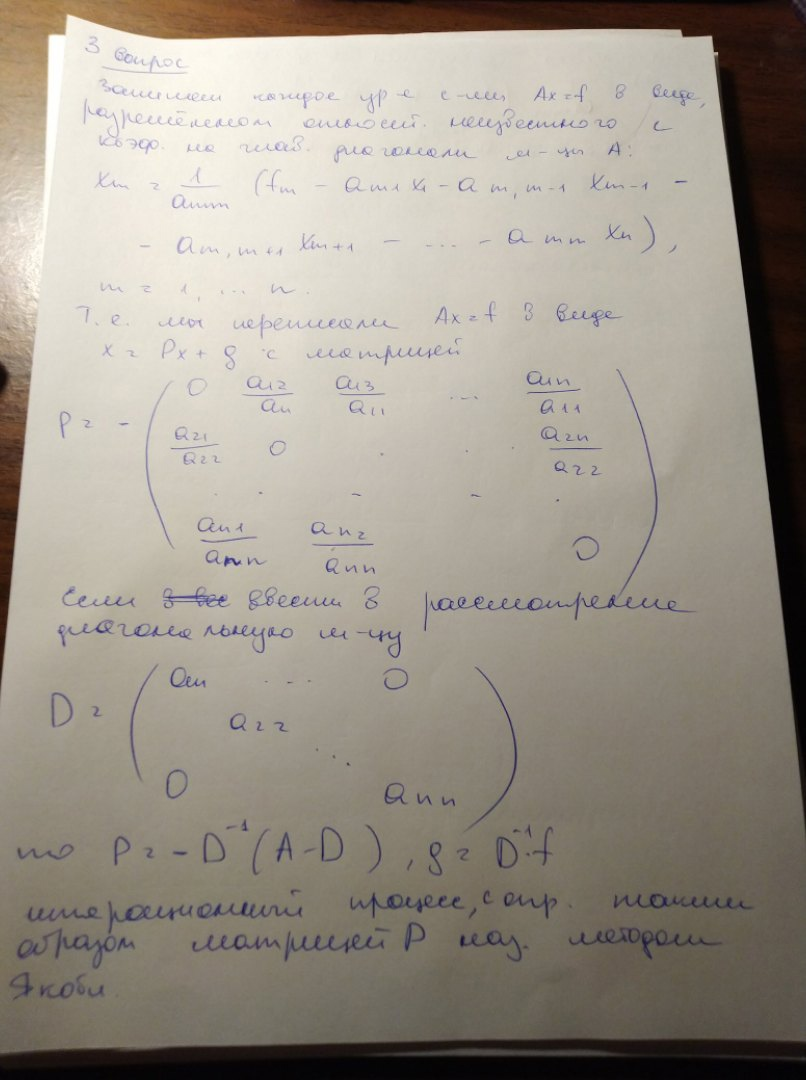 3 вопрос
Запишем каждое ур-е с-мы Ax=f в виде,
разрешённом относит. неизвестного с
коэф. на глав. диагонали м-цы A:
xm = 1/amm (fm - am1 x1 - a m,m-1 xm-1 -
- am,m+1 xm+1 - ... - a mn xn),
m = 1, ... n.
Т.е. мы переписали Ax=f в виде
x = Px + g с матрицей
P = - ( 0 a12/a11 a13/a11 ... a1n/a11
a21/a22 0 . . . a2n/a22
. . - - .
an1/ann an2/ann 0 )
Если ввести в рассмотрение
диагональную м-цу
D = ( a11 ... 0
a22
⋱
0 ann )
то P = -D⁻¹(A-D), g = D⁻¹·f
итерационный процесс, с опр. таким
образом матрицей P наз. методом
Якоби.